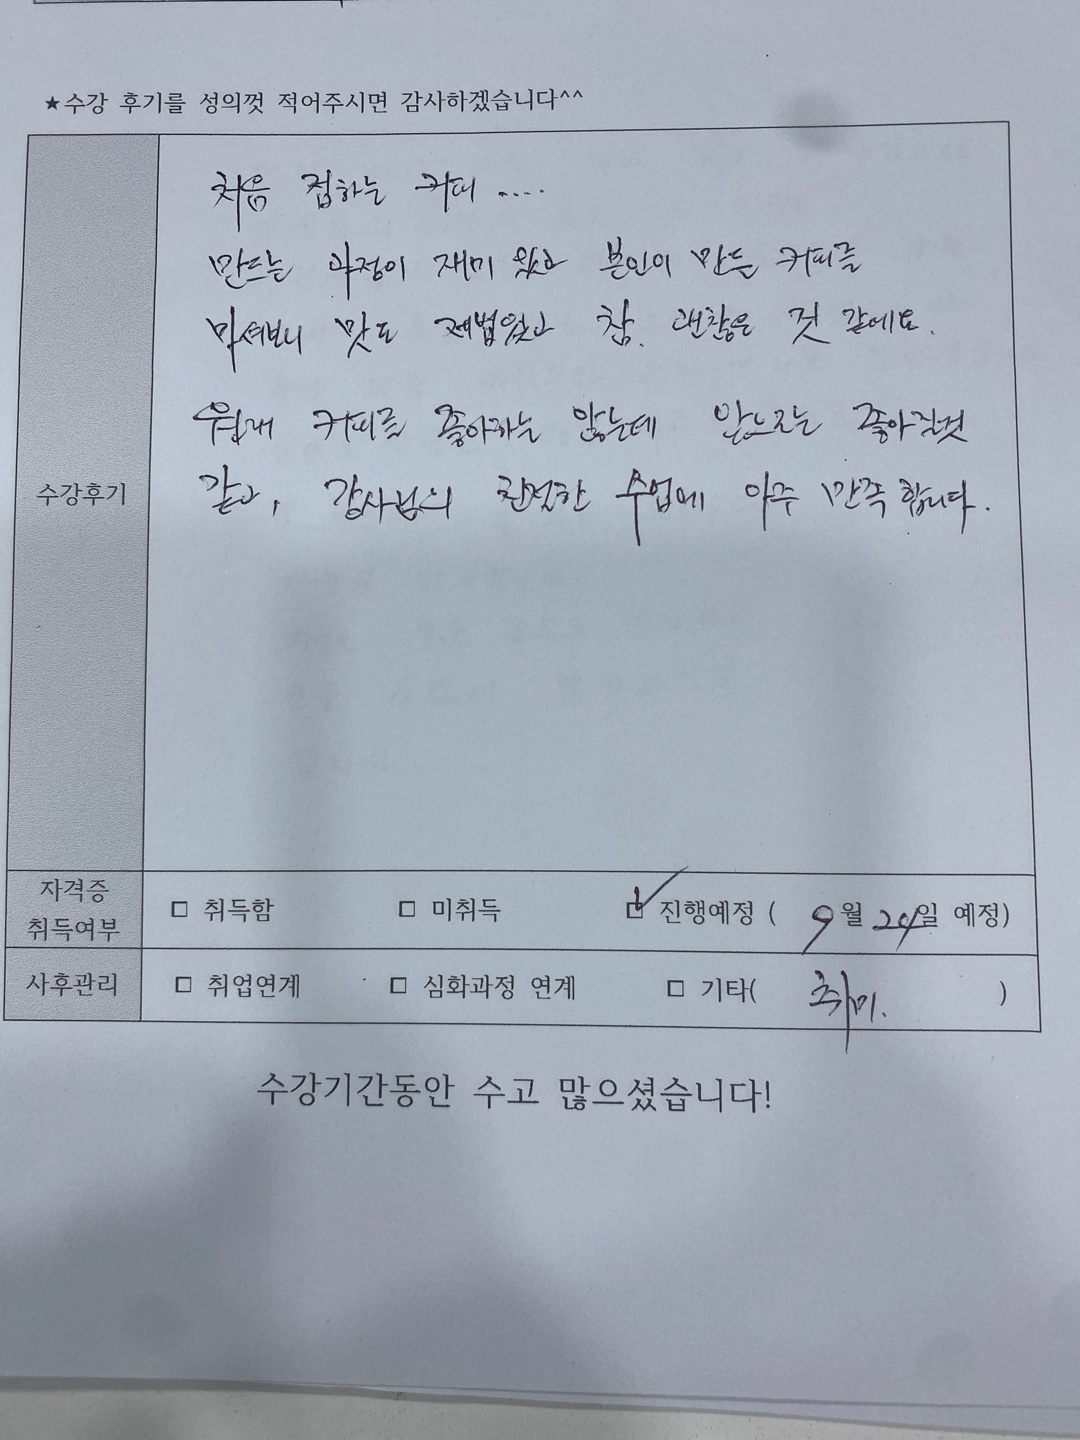 ★수강 후기를 성의껏 적어주시면 감사하겠습니다^^
수강후기
처음 접하는 커피 ....
만드는 과정이 재미 있고 본인이 만든 커피를
마셔보니 맛도 제법있고 참. 괜찮은 것 같에요.
원래 커피를 좋아하는 않는데 앞으로는 좋아질것
같고, 강사님의 친절한 수업에 아주 만족 합니다.
자격증 취득여부 □ 취득함 □ 미취득 ☑ 진행예정 ( 9월 24일 예정)
사후관리 □ 취업연계 □ 심화과정 연계 □ 기타( 취미. )
수강기간동안 수고 많으셨습니다!